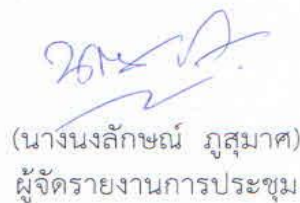 (นางนงลักษณ์ ภูสุมาศ)
ผู้จัดรายงานการประชุม